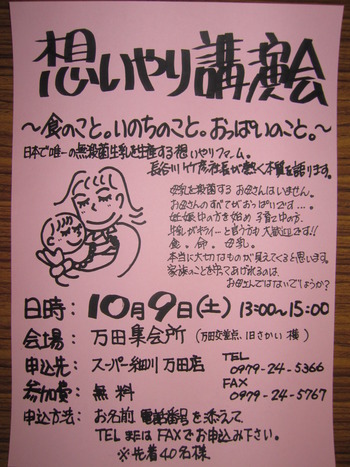 想いやり講演会
～食のこと。いのちのこと。おっぱいのこと。～
日本で唯一の無殺菌生乳を生産する想いやりファーム。
長谷川竹彦社長が熱く本質を語ります。
母乳を殺菌するお母さんはいません。
お母さんのすべてがおっぱいです…。
妊娠中の方を始め子育て中の方、
牛乳がキライ…と言う方も大歓迎です!!
食。命。母乳。
本当に大切なものが見えてくると思います。
家族のことを守ってあげれるのは、
お母さんではないでしょうか?
日時: 10月9日(土) 13:00〜15:00
会場: 万田集会所 (万田交差点、旧さかい様)
申込先: スーパー細川 万田店
TEL
0979-24-5366
参加費: 無料
FAX
0979-24-5767
申込方法: お名前 電話番号を添えて
TELまたはFAXでお申込み下さい。
※先着40名様